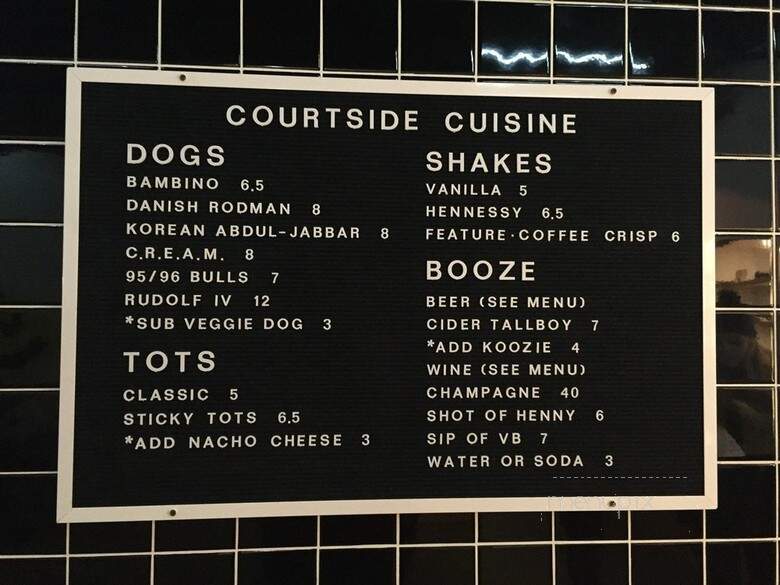 COURTSIDE CUISINE
DOGS
BAMBINO 6.5
DANISH RODMAN 8
KOREAN ABDUL-JABBAR 8
C.R.E.A.M. 8
95/96 BULLS 7
RUDOLF IV 12
*SUB VEGGIE DOG 3
TOTS
CLASSIC 5
STICKY TOTS 6.5
*ADD NACHO CHEESE 3
SHAKES
VANILLA 5
HENNESSY 6.5
FEATURE·COFFEE CRISP 6
BOOZE
BEER (SEE MENU)
CIDER TALLBOY 7
*ADD KOOZIE 4
WINE (SEE MENU)
CHAMPAGNE 40
SHOT OF HENNY 6
SIP OF VB 7
WATER OR SODA 3